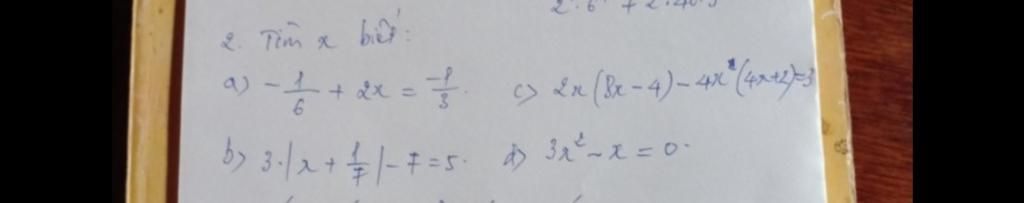 2. Tìm x biết:
a) -1/6 + 2x = -1/3. c) 2x(8x-4)-4x²(4x+2)=3
b) 3.|x+1/7|-7=5. d) 3x²-x=0.